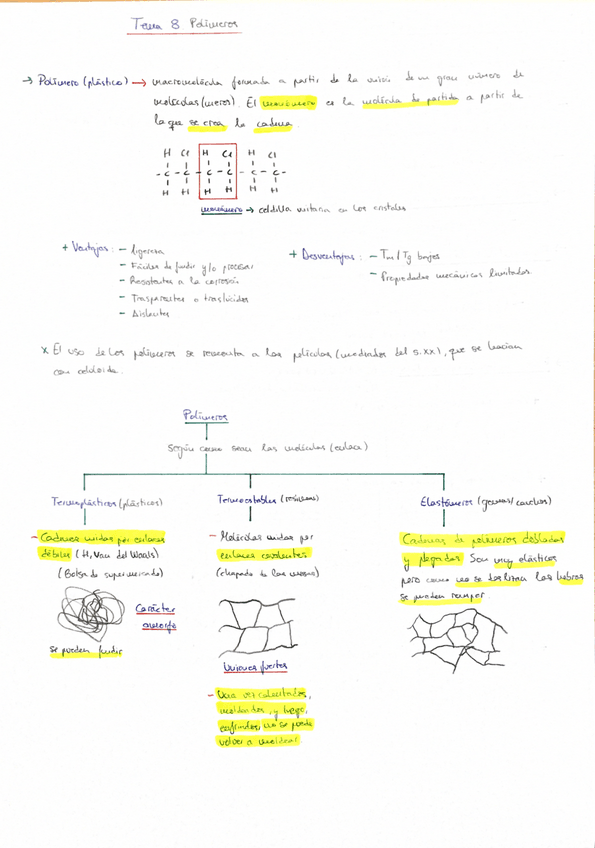 Tema 8. Polímeros
→ Polímero (plástico) → macromolécula formada a partir de la unión de un gran número de
moléculas (meros). El monómero es la molécula de partida a partir de
la que se crea la cadena.
H Cl H Cl H Cl
- C - C - C - C - C - C -
H H H H H H
monómero → celdilla unitaria en los cristales
+ Ventajas: - ligereza
- Fáciles de fundir y/o procesar
- Resistentes a la corrosión
- Trasparentes o traslúcidos
- Aislantes
+ Desventajas: - Tm / Tg bajas
- Propiedades mecánicas limitadas.
x El uso de los polímeros se remonta a las películas (mediados del s.XX), que se hacían
con celuloide.
Polímeros
Según como sean las moléculas (enlace)
Termoplásticos (plásticos)
- Cadenas unidas por enlaces
débiles (H, Van del Waals)
(Bolsa de supermercado)
Carácter
amorfo
Se pueden fundir
Termoestables (resinas)
- Moléculas unidas por
enlaces covalentes
(chapado de las mesas)
Uniones fuertes
- Una vez calentados,
moldeados, y luego,
enfriados, no se puede
volver a moldear.
Elastómeros (gomas/cauchos)
Cadenas de polímeros dobladas
y plegadas. Son muy elásticos
pero como no se deslizan las hebras
se pueden romper.